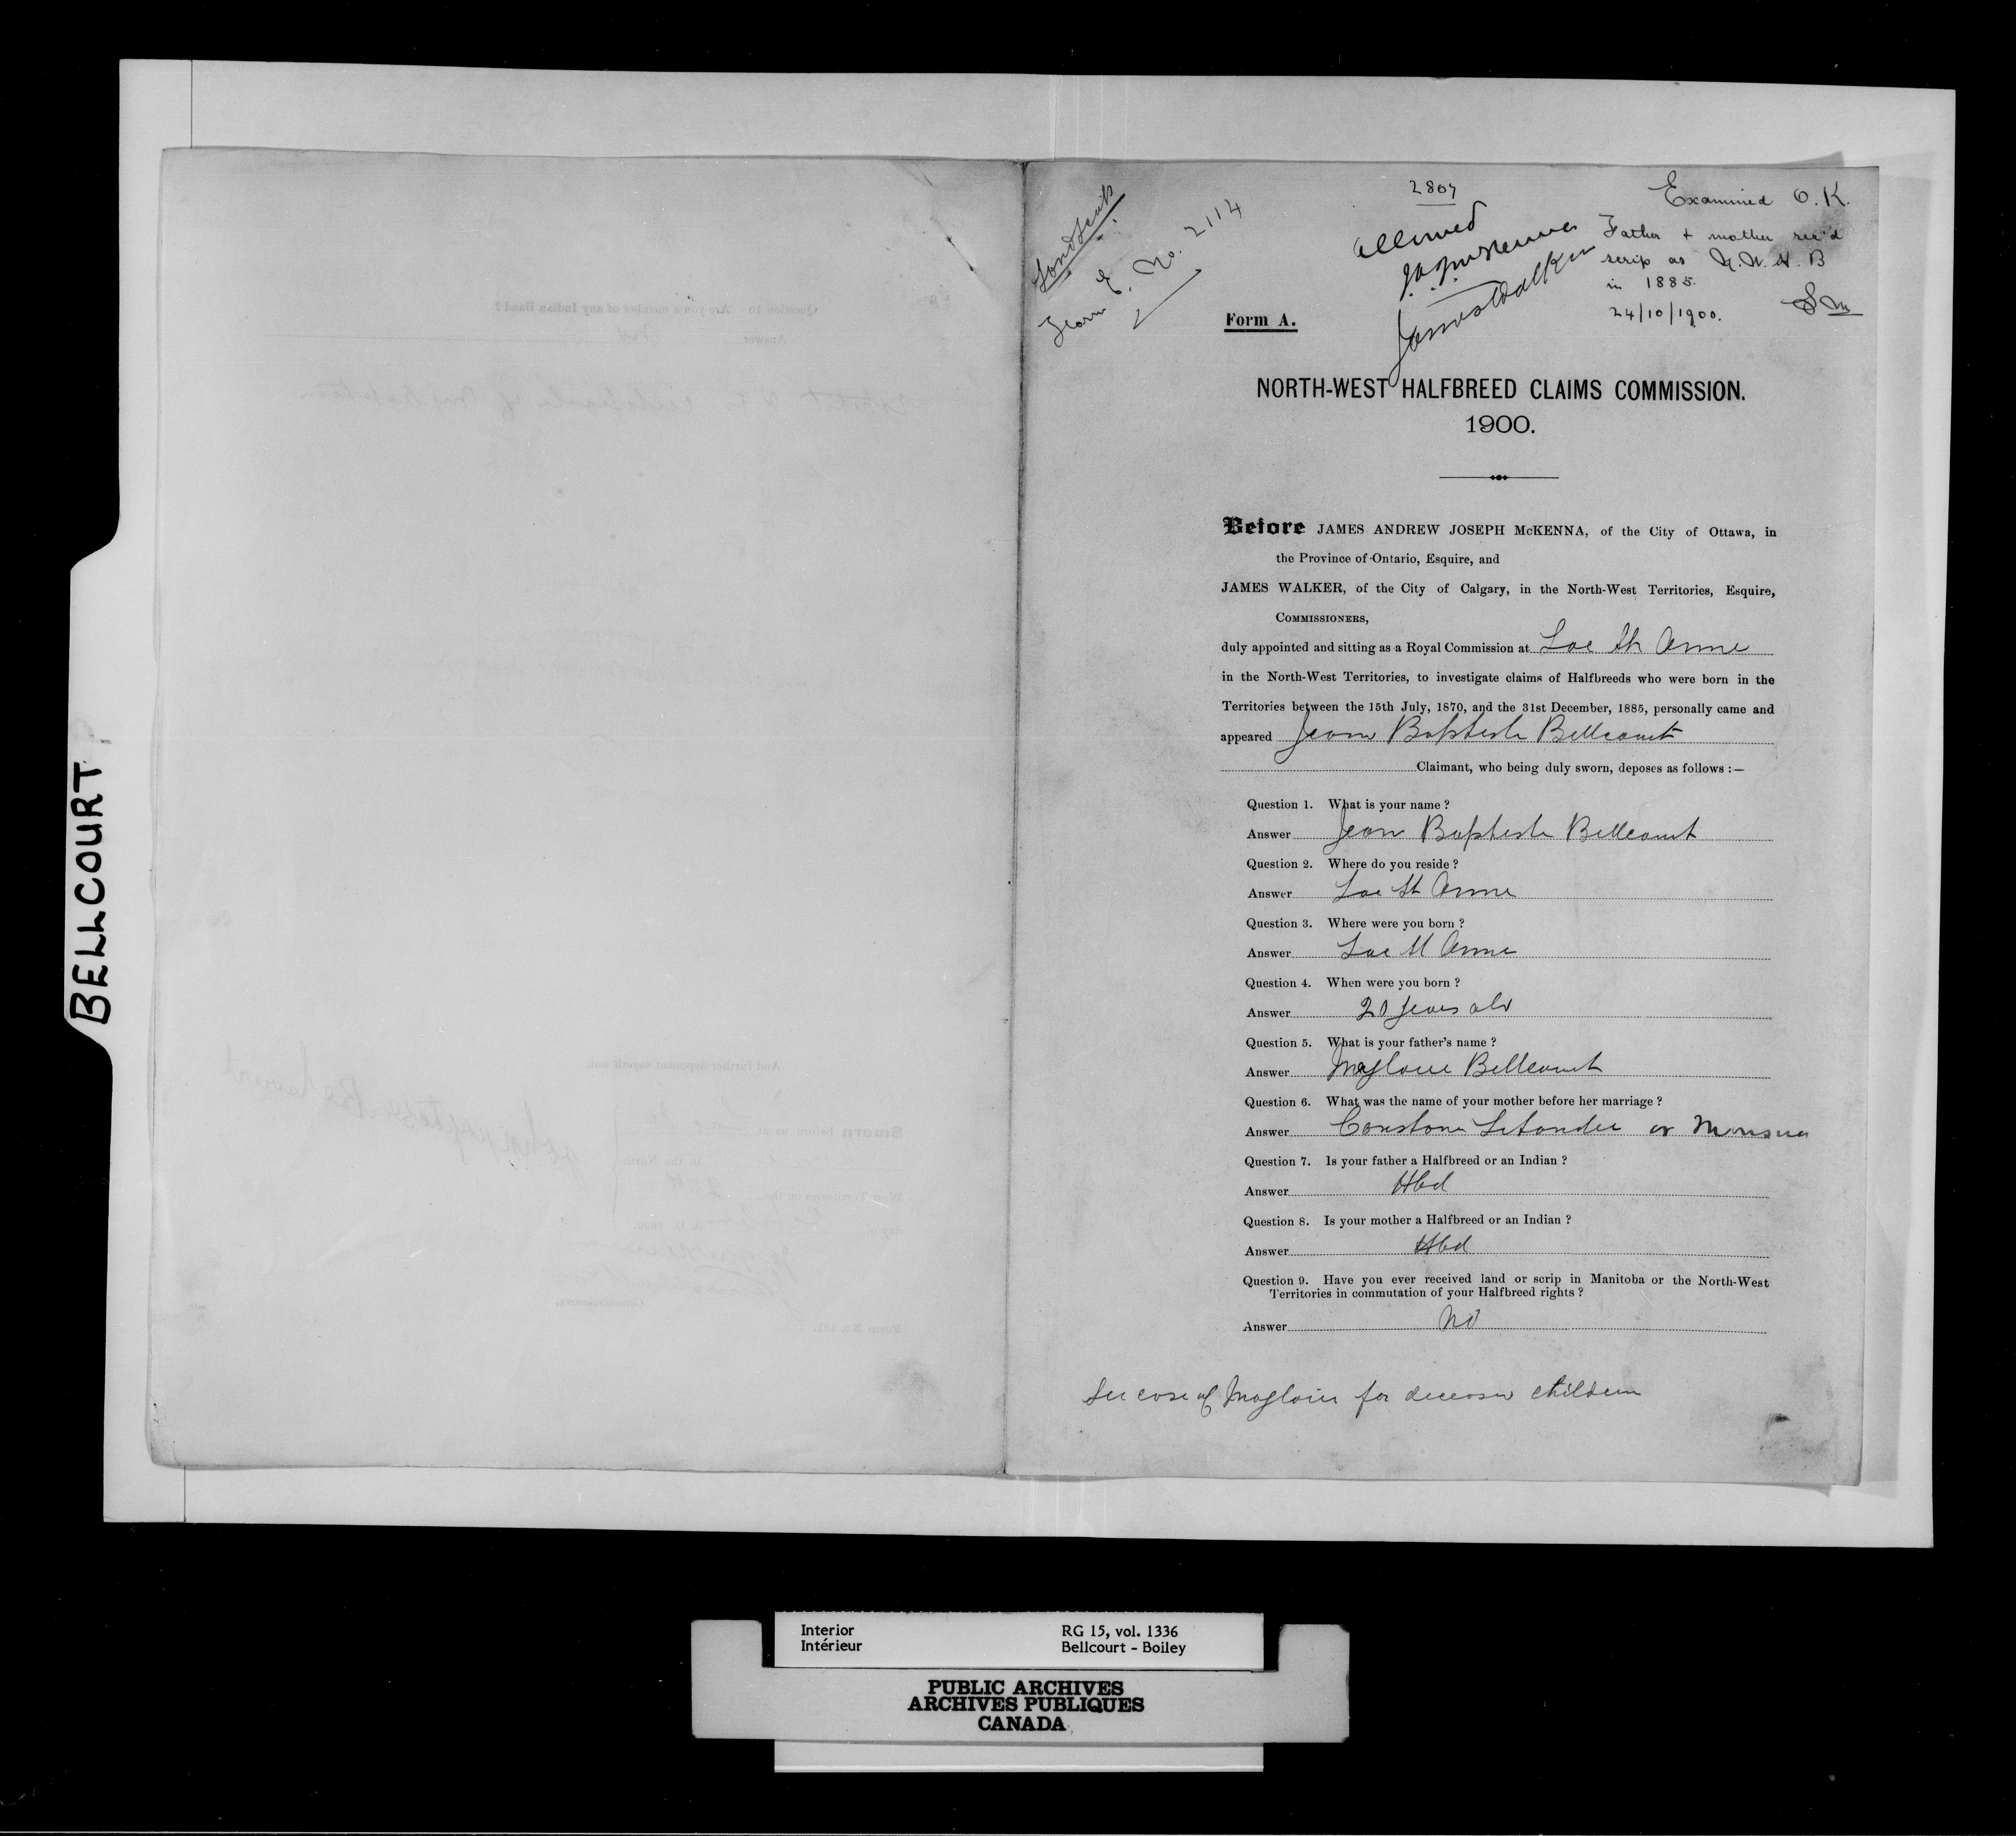 BELLCOURT
Land Scrip
Form E. No. 2114
2807
Allowed
J.A.J. McKenna
James Walker
Examined O.K.
Father + mother rec'd
scrip as N.W.H.B
in 1885.
24/10/1900.
Form A.
NORTH-WEST HALFBREED CLAIMS COMMISSION.
1900.
Before JAMES ANDREW JOSEPH McKENNA, of the City of Ottawa, in
the Province of Ontario, Esquire, and
JAMES WALKER, of the City of Calgary, in the North-West Territories, Esquire,
COMMISSIONERS,
duly appointed and sitting as a Royal Commission at Lac St Anne
in the North-West Territories, to investigate claims of Halfbreeds who were born in the
Territories between the 15th July, 1870, and the 31st December, 1885, personally came and
appeared Jean Baptiste Bellcourt
Claimant, who being duly sworn, deposes as follows :—
Question 1. What is your name ?
Answer Jean Baptiste Bellcourt
Question 2. Where do you reside ?
Answer Lac St Anne
Question 3. Where were you born ?
Answer Lac St Anne
Question 4. When were you born ?
Answer 20 years old
Question 5. What is your father's name ?
Answer Magloire Bellcourt
Question 6. What was the name of your mother before her marriage ?
Answer or
Question 7. Is your father a Halfbreed or an Indian ?
Answer Hbd
Question 8. Is your mother a Halfbreed or an Indian ?
Answer Hbd
Question 9. Have you ever received land or scrip in Manitoba or the North-West
Territories in commutation of your Halfbreed rights ?
Answer No
See case of Magloire for deceased children
Interior
Intérieur
RG 15, vol. 1336
Bellcourt - Boiley
PUBLIC ARCHIVES
ARCHIVES PUBLIQUES
CANADA